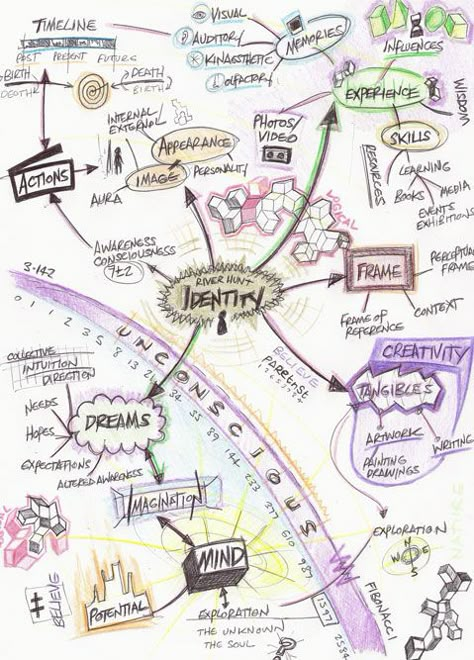 TIMELINE
PAST PRESENT FUTURE
BIRTH
DEATH
DEATH
BIRTH
VISUAL
AUDITORY
KINAESTHETIC
OLFACTORY
MEMORIES
INFLUENCES
EXPERIENCE
WISDOM
SKILLS
RESOURCES
LEARNING
BOOKS
MEDIA
EVENTS
EXHIBITIONS
PHOTOS/
VIDEO
INTERNAL/
EXTERNAL
APPEARANCE
IMAGE
PERSONALITY
AURA
ACTIONS
AWARENESS
CONSCIOUSNESS
7±2
LOGICAL
RIVER HUNT
IDENTITY
FRAME
PERCEPTUAL
FRAME
FRAME OF
REFERENCE
CONTEXT
BELIEVE
CREATIVITY
TANGIBLES
ARTWORK
PAINTING
DRAWINGS
WRITING
3.142
0 1 1 2 3 5 8 13 21 34 55 89 144 233 377 610 987 1597 2584
UNCONSCIOUS
COLLECTIVE
INTUITION
DIRECTION
NEEDS
HOPES
EXPECTATIONS
DREAMS
ALTERED AWARENESS
IMAGINATION
MIND
POTENTIAL
BELIEVE
EXPLORATION
THE UNKNOWN
THE SOUL
EXPLORATION
N
W E
S
NATURE
FIBONACCI